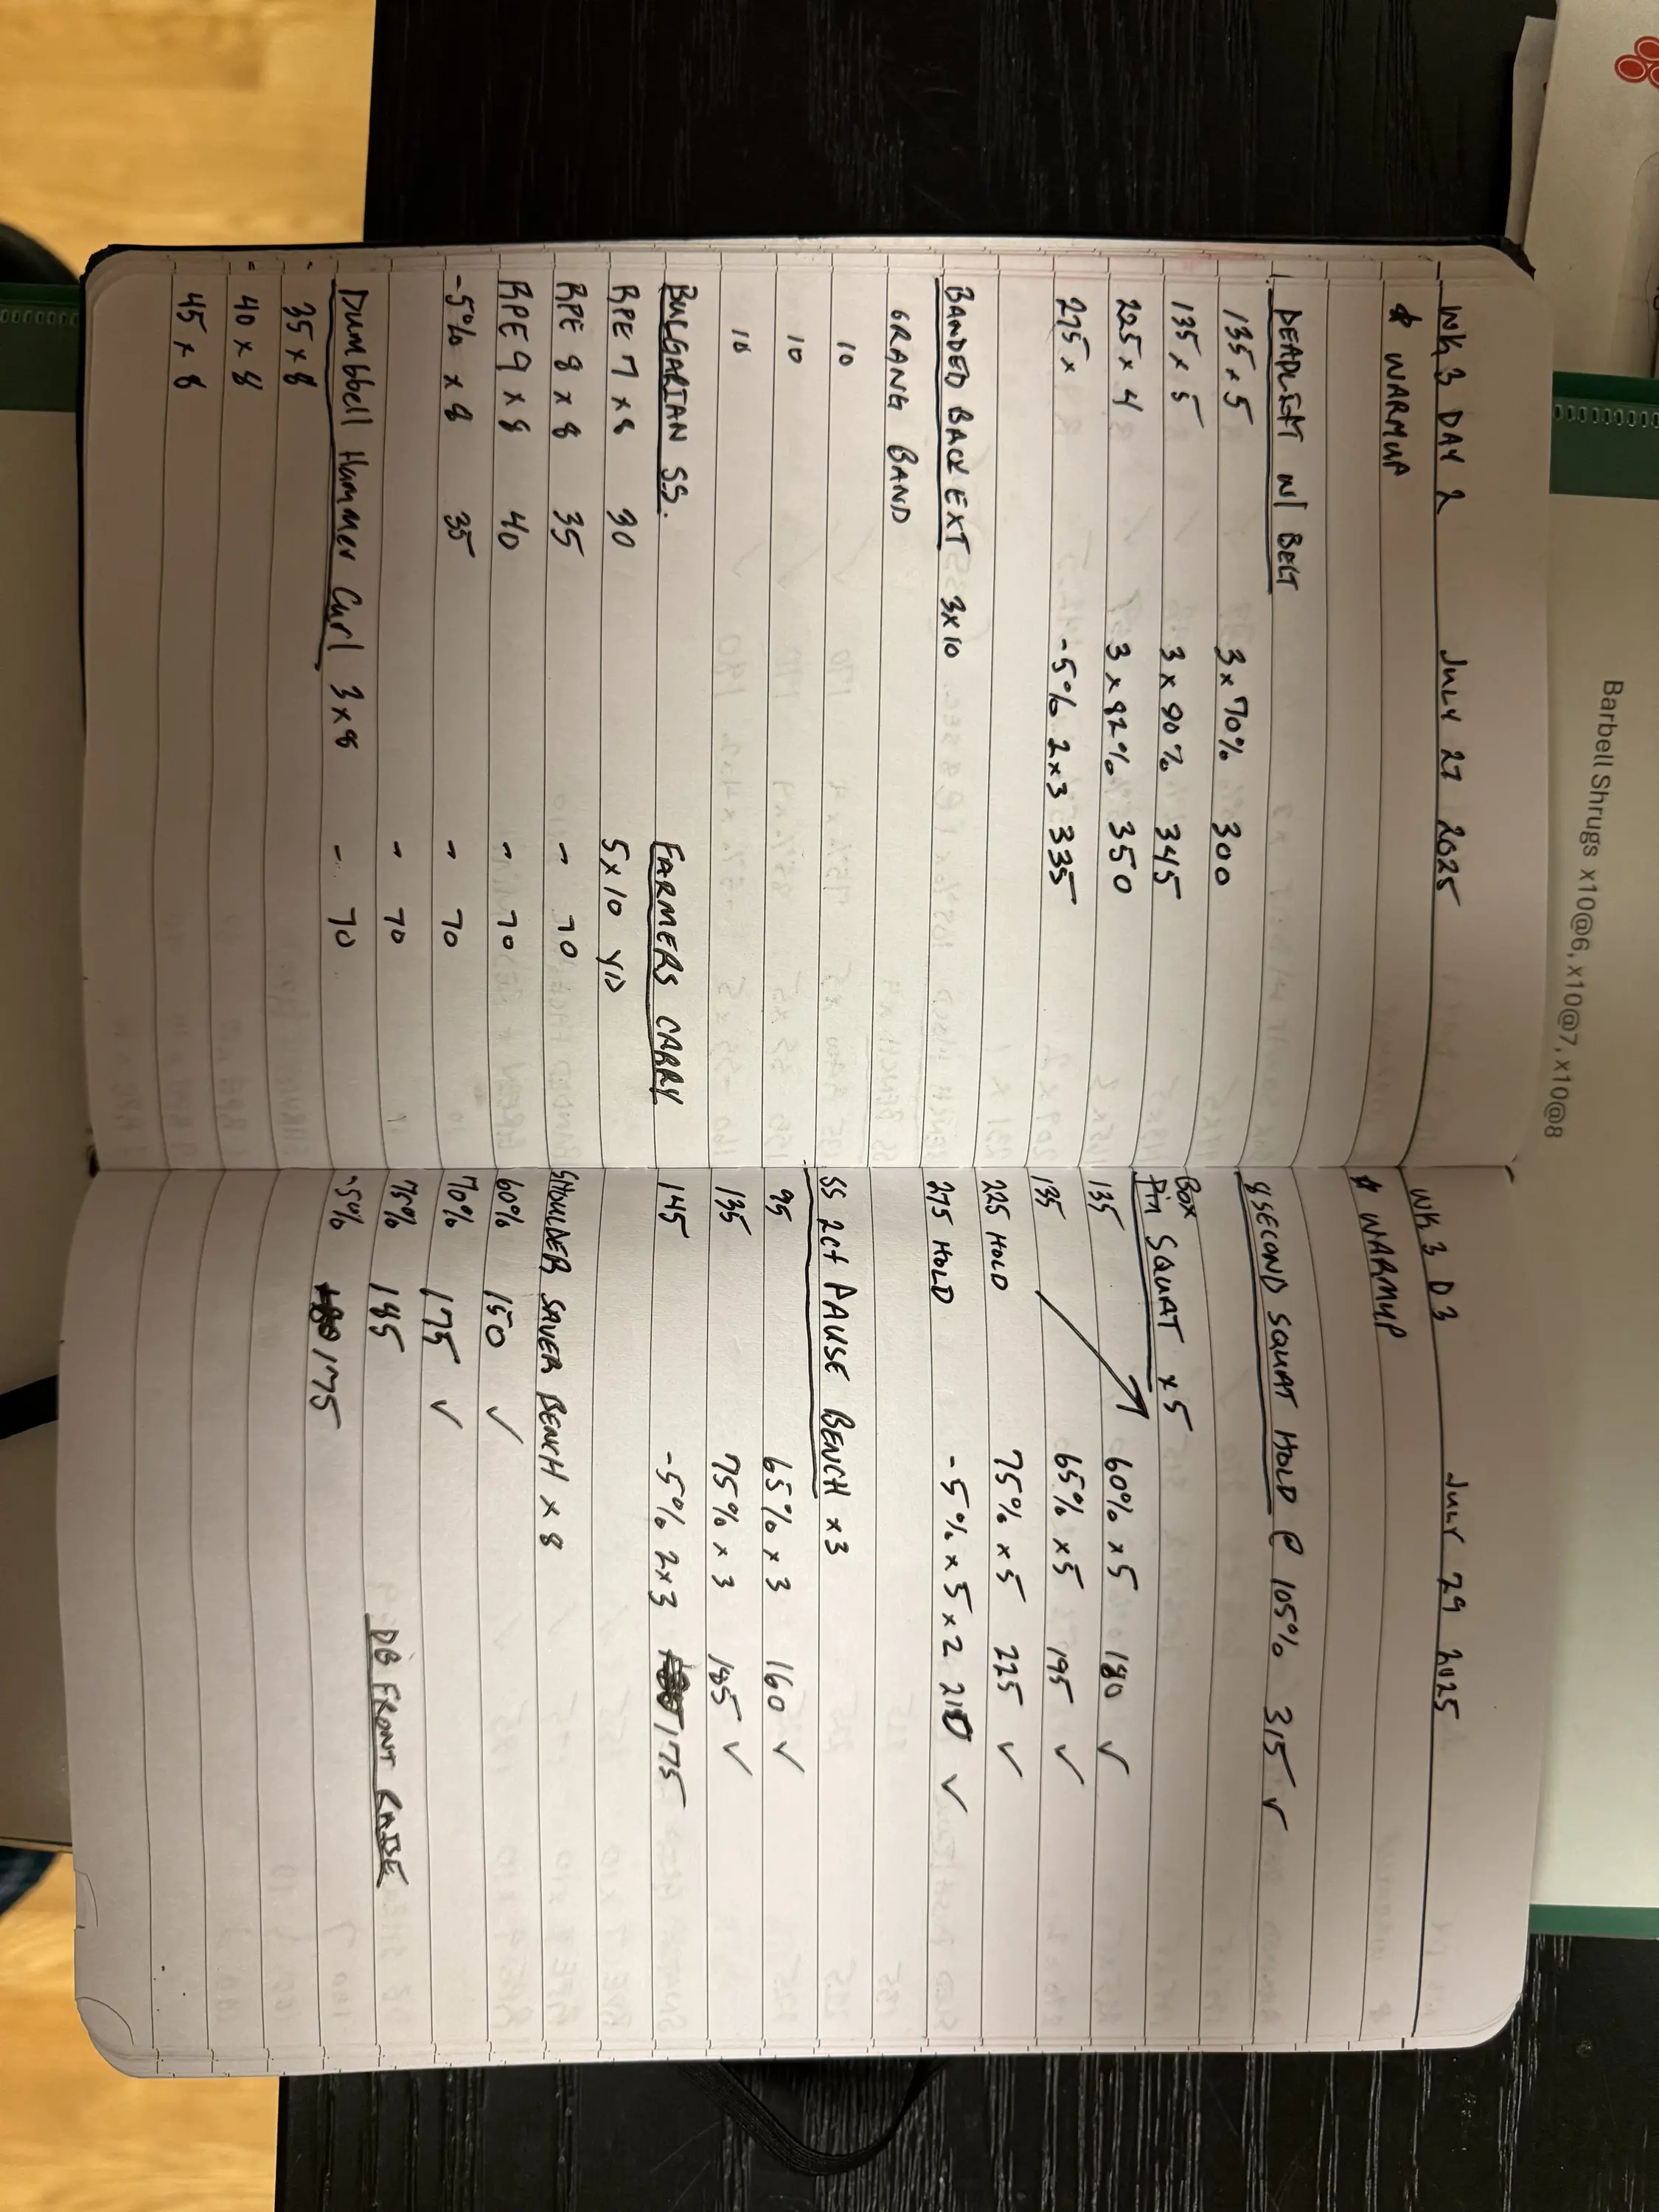 Barbell Shrugs x10@6, x10@7, x10@8
WK 3 DAY 2 JULY 27 2025
* WARMUP
DEADLIFT W/ BELT
135 x 5 3 x 70% 300
135 x 5 3 x 90% 345
225 x 4 3 x 92% 350
275 x -5% 2x3 335
BANDED BACK EXT 3x10
GRANG BAND
10
10
10
BULGARIAN SS. FARMERS CARRY
RPE 7 x 8 30 5 x 10 YD
RPE 8 x 8 35 - 70
RPE 9 x 8 40 - 70
-5% x 8 35 - 70
- 70
Dumbbell Hammer Curl 3 x 8 - 70
35 x 8
40 x 8
45 x 8
WK 3 D3 JULY 29 2025
* WARMUP
8 SECOND SQUAT HOLD @ 105% 315 ✓
Box
Pin SQUAT x 5
135 60% x 5 180 ✓
135 65% x 5 195 ✓
225 HOLD 75% x 5 225 ✓
275 HOLD -5% x 5 x 2 210 ✓
SS 2ct PAUSE BENCH x 3
95 65% x 3 160 ✓
135 75% x 3 185 ✓
145 -5% 2x3 175
SHOULDER SAVER BENCH x 8
60% 150 ✓
70% 175 ✓
75% 185 DB FRONT RAISE
-5% 175